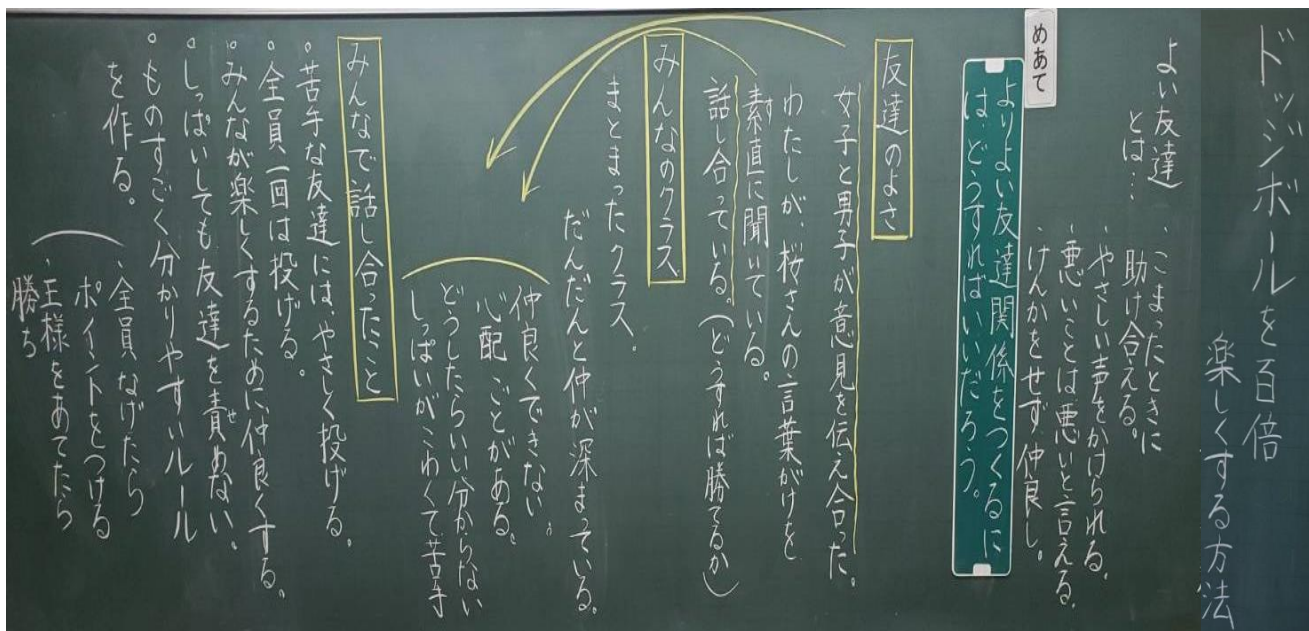 ドッジボールを百倍
楽しくする方法
よい友達
とは…
・こまったときに
助け合える。
・やさしい声をかけられる。
・悪いことは悪いと言える。
・けんかをせず仲良し。
めあて
よりよい友達関係をつくるに
は、どうすればいいだろう。
友達のよさ
女子と男子が意見を伝え合った。
わたしが、桜さんの言葉がけを
す
素直に聞いている。
話し合っている。(どうすれば勝てるか)
みんなのクラス
まとまったクラス、
だんだんと仲が深まっている。
仲良くできない。
心配ごとがある。
どうしたらいい分からない
しっぱいがこわくて苦手
みんなで話し合ったこと
・苦手な友達には、やさしく投げる。
。全員一回は投げる。
。みんなが楽しくするために、仲良くする。
せ
。しっぱいしても友達を責めない。
。ものすごく分かりやすいルール
を作る。
・全員なげたら
ポイントをつける
・王様をあてたら
勝ち